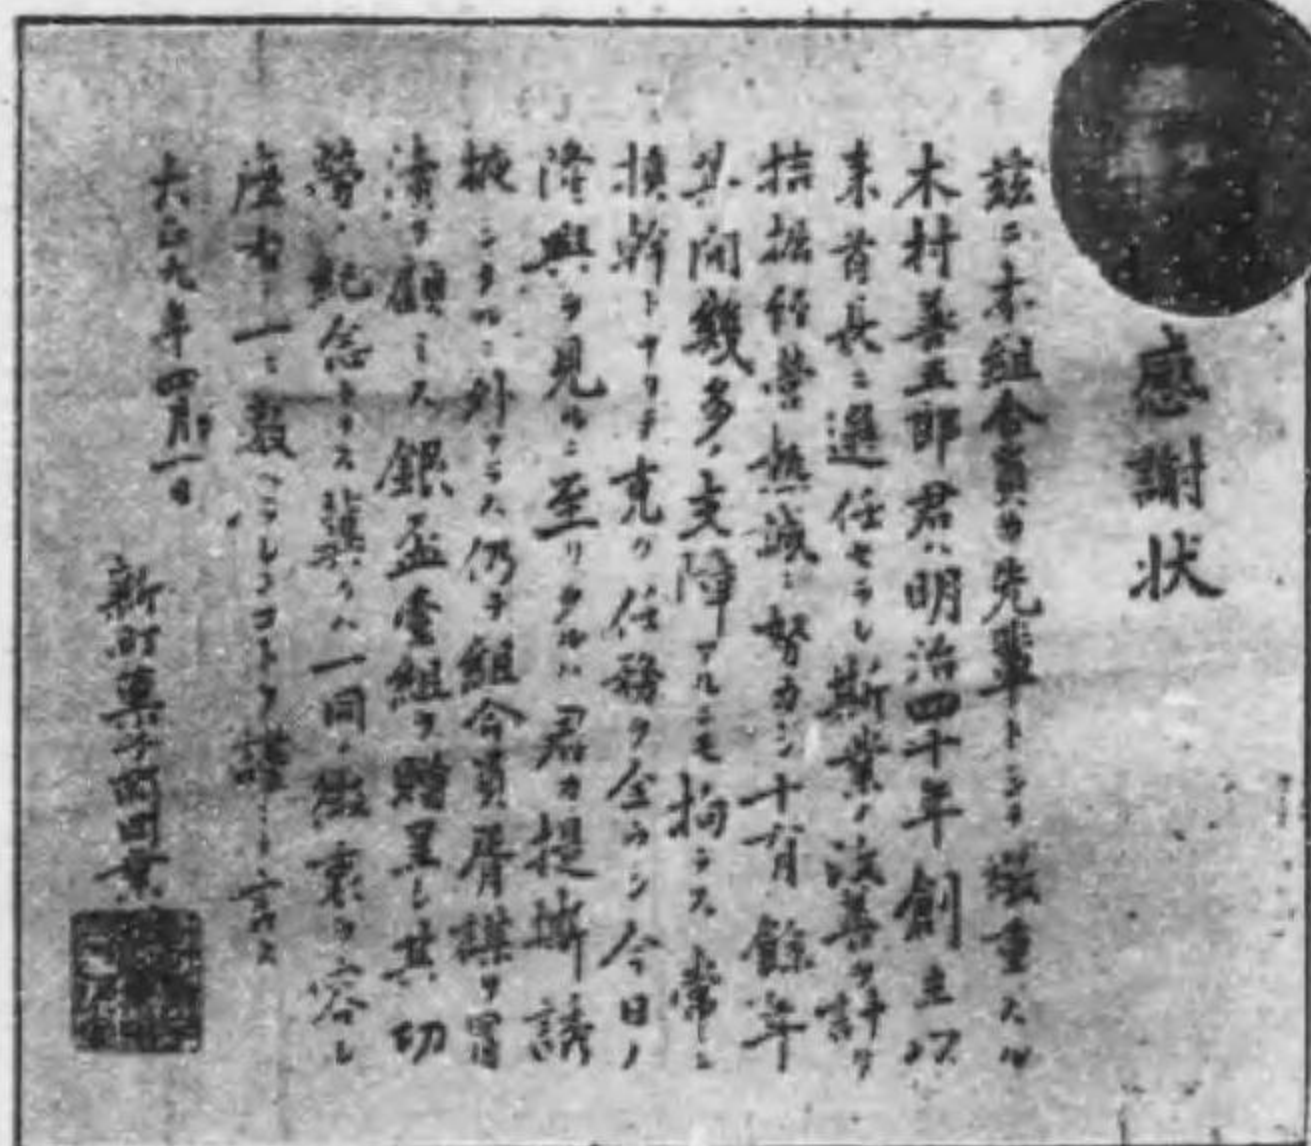 感謝状
茲ニ本組合員カ先輩トシテ敬重スル
木村善五郎君ハ明治四十年創立以
来首長ニ選任セラレ斯業ノ改善ヲ計リ
拮据経営熱誠ニ努力シ十有餘年
其間幾多ノ支障アルニモ拘ラス常ニ
槙幹トナリテ克ク任務ヲ全ウシ今日ノ
隆興ヲ見ルニ至リタルハ君カ提撕誘
掖シタルニ外ナラス仍テ組合員胥謀リ冒
瀆ヲ顧ミス銀盃壹組ヲ贈呈シ其功
労ノ紀念トナス冀クハ一同ノ微衷ヲ容レ
座右ノ一ニ数ヘラレンコトヲ謹ミ言ス
大正九年四月一日
新町菓子商同業